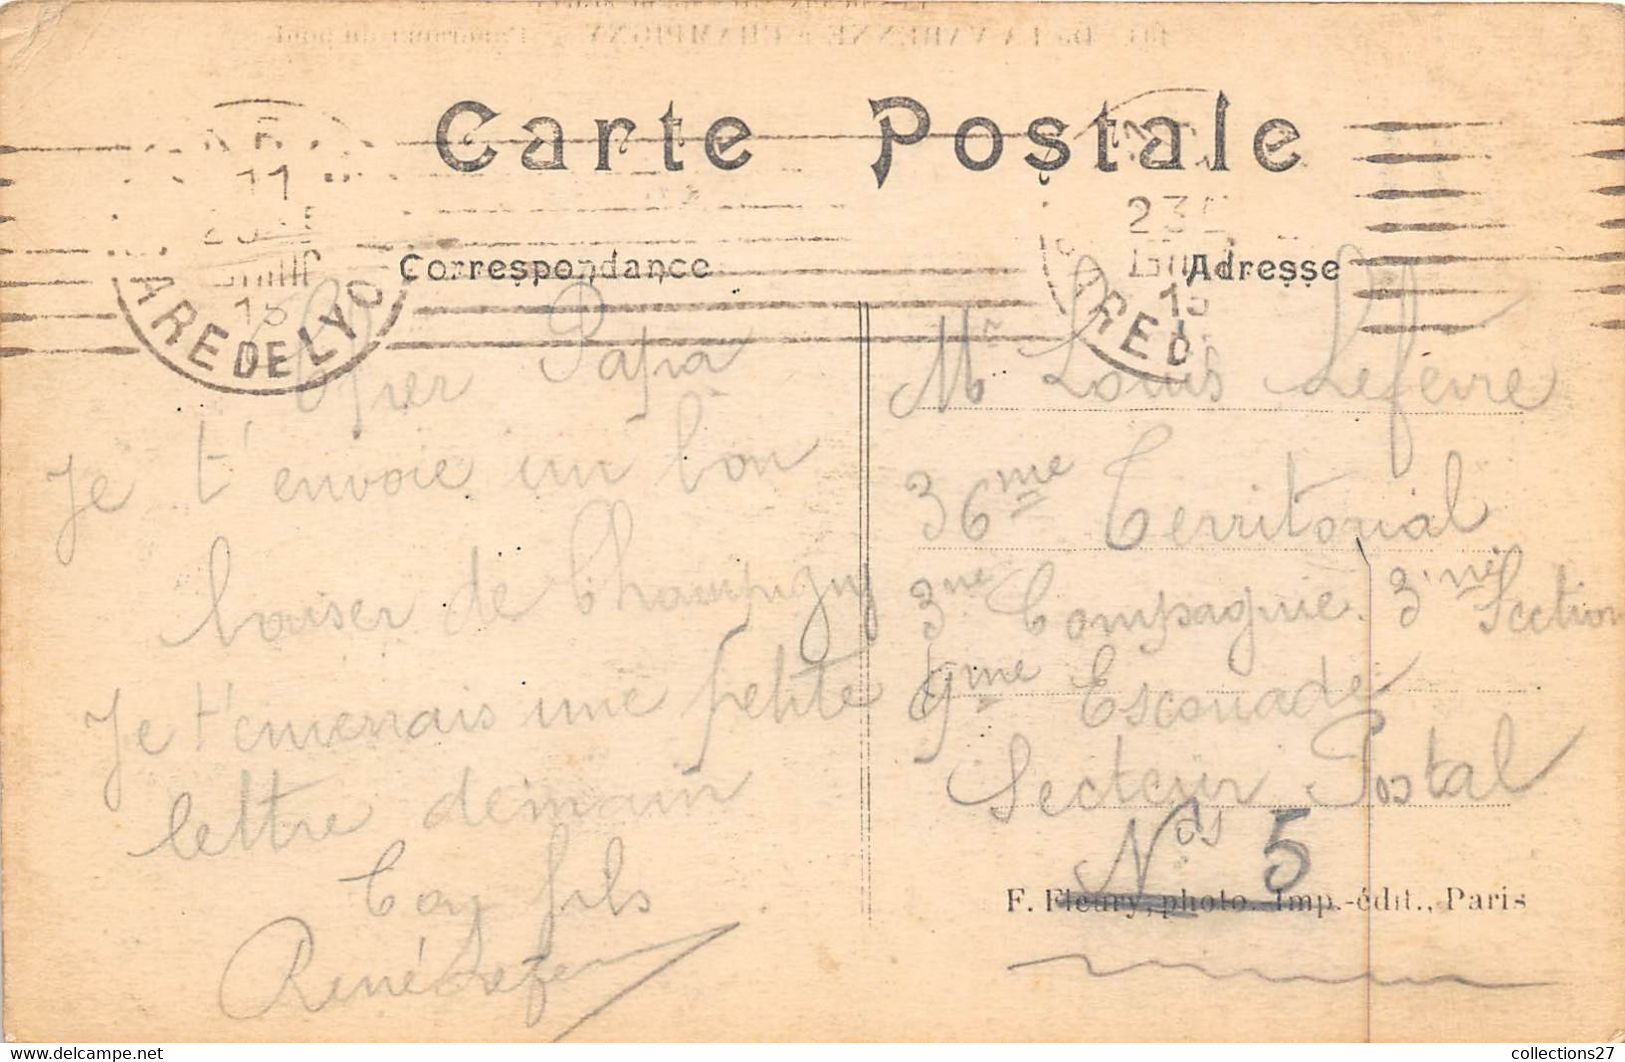 Carte Postale
11
23
15
GARE DE LYO
Correspondance
Adresse
Cher Papa
Je t'envoie un bon
baiser de Champigny
Je t'enverrais une petite
lettre demain
Ton fils
René Lefe
Mr Louis Lefèvre
36me Territorial
3me Compagnie. 3me Section
9me Escouade
Secteur Postal
Nos 5
F. Fleury, photo. Imp.-édit., Paris
collections27